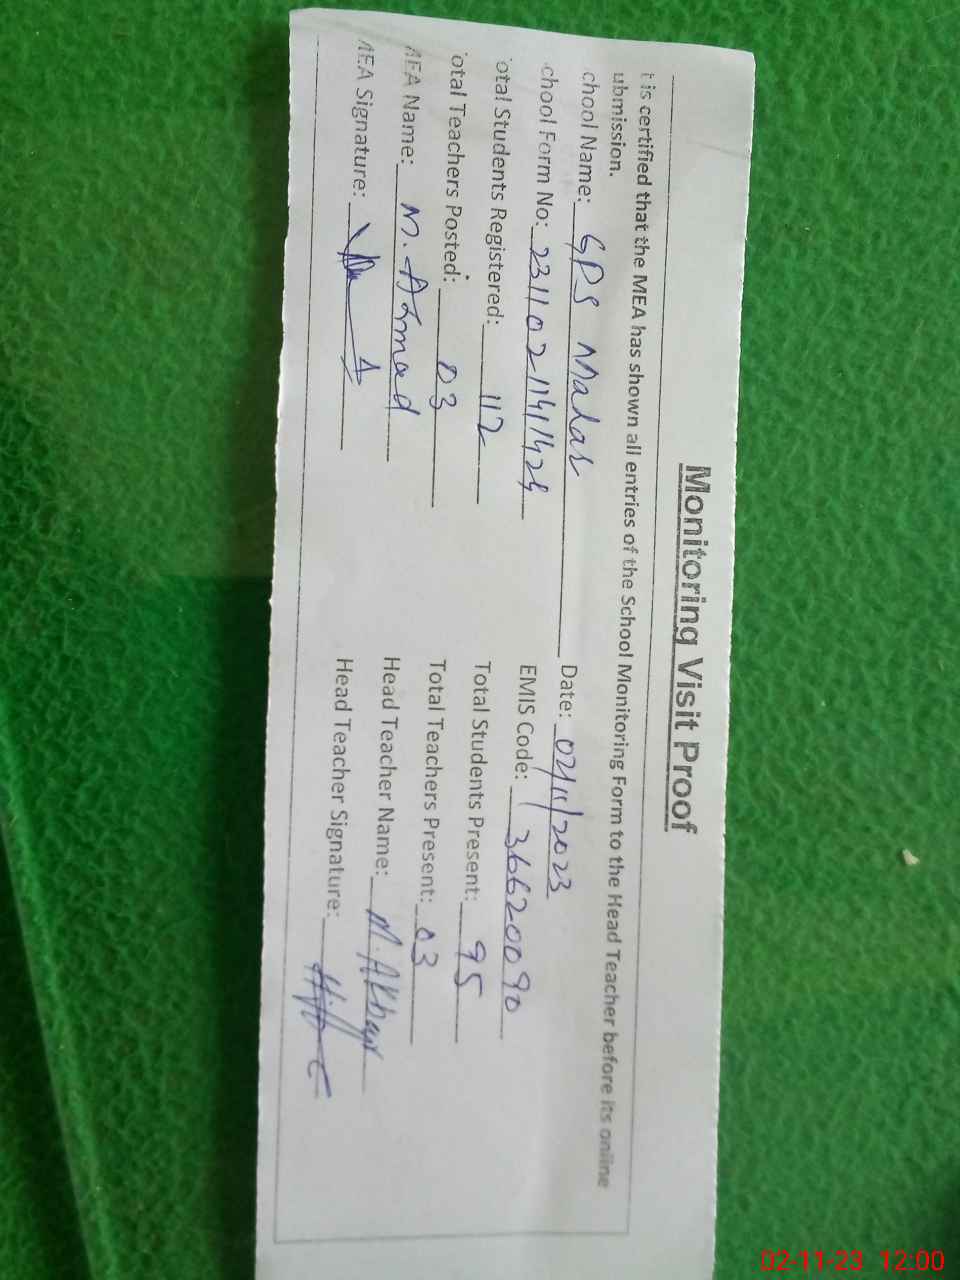 Monitoring Visit Proof
t is certified that the MEA has shown all entries of the School Monitoring Form to the Head Teacher before its online
ubmission.
chool Name: GPS Date: 02/11/2023
chool Form No: EMIS Code: 36620090
otal Students Registered: 112 Total Students Present: 95
otal Teachers Posted: 03 Total Teachers Present: 03
MEA Name: M. Head Teacher Name: M. Akbar
MEA Signature: Head Teacher Signature:
02-11-23 12:00